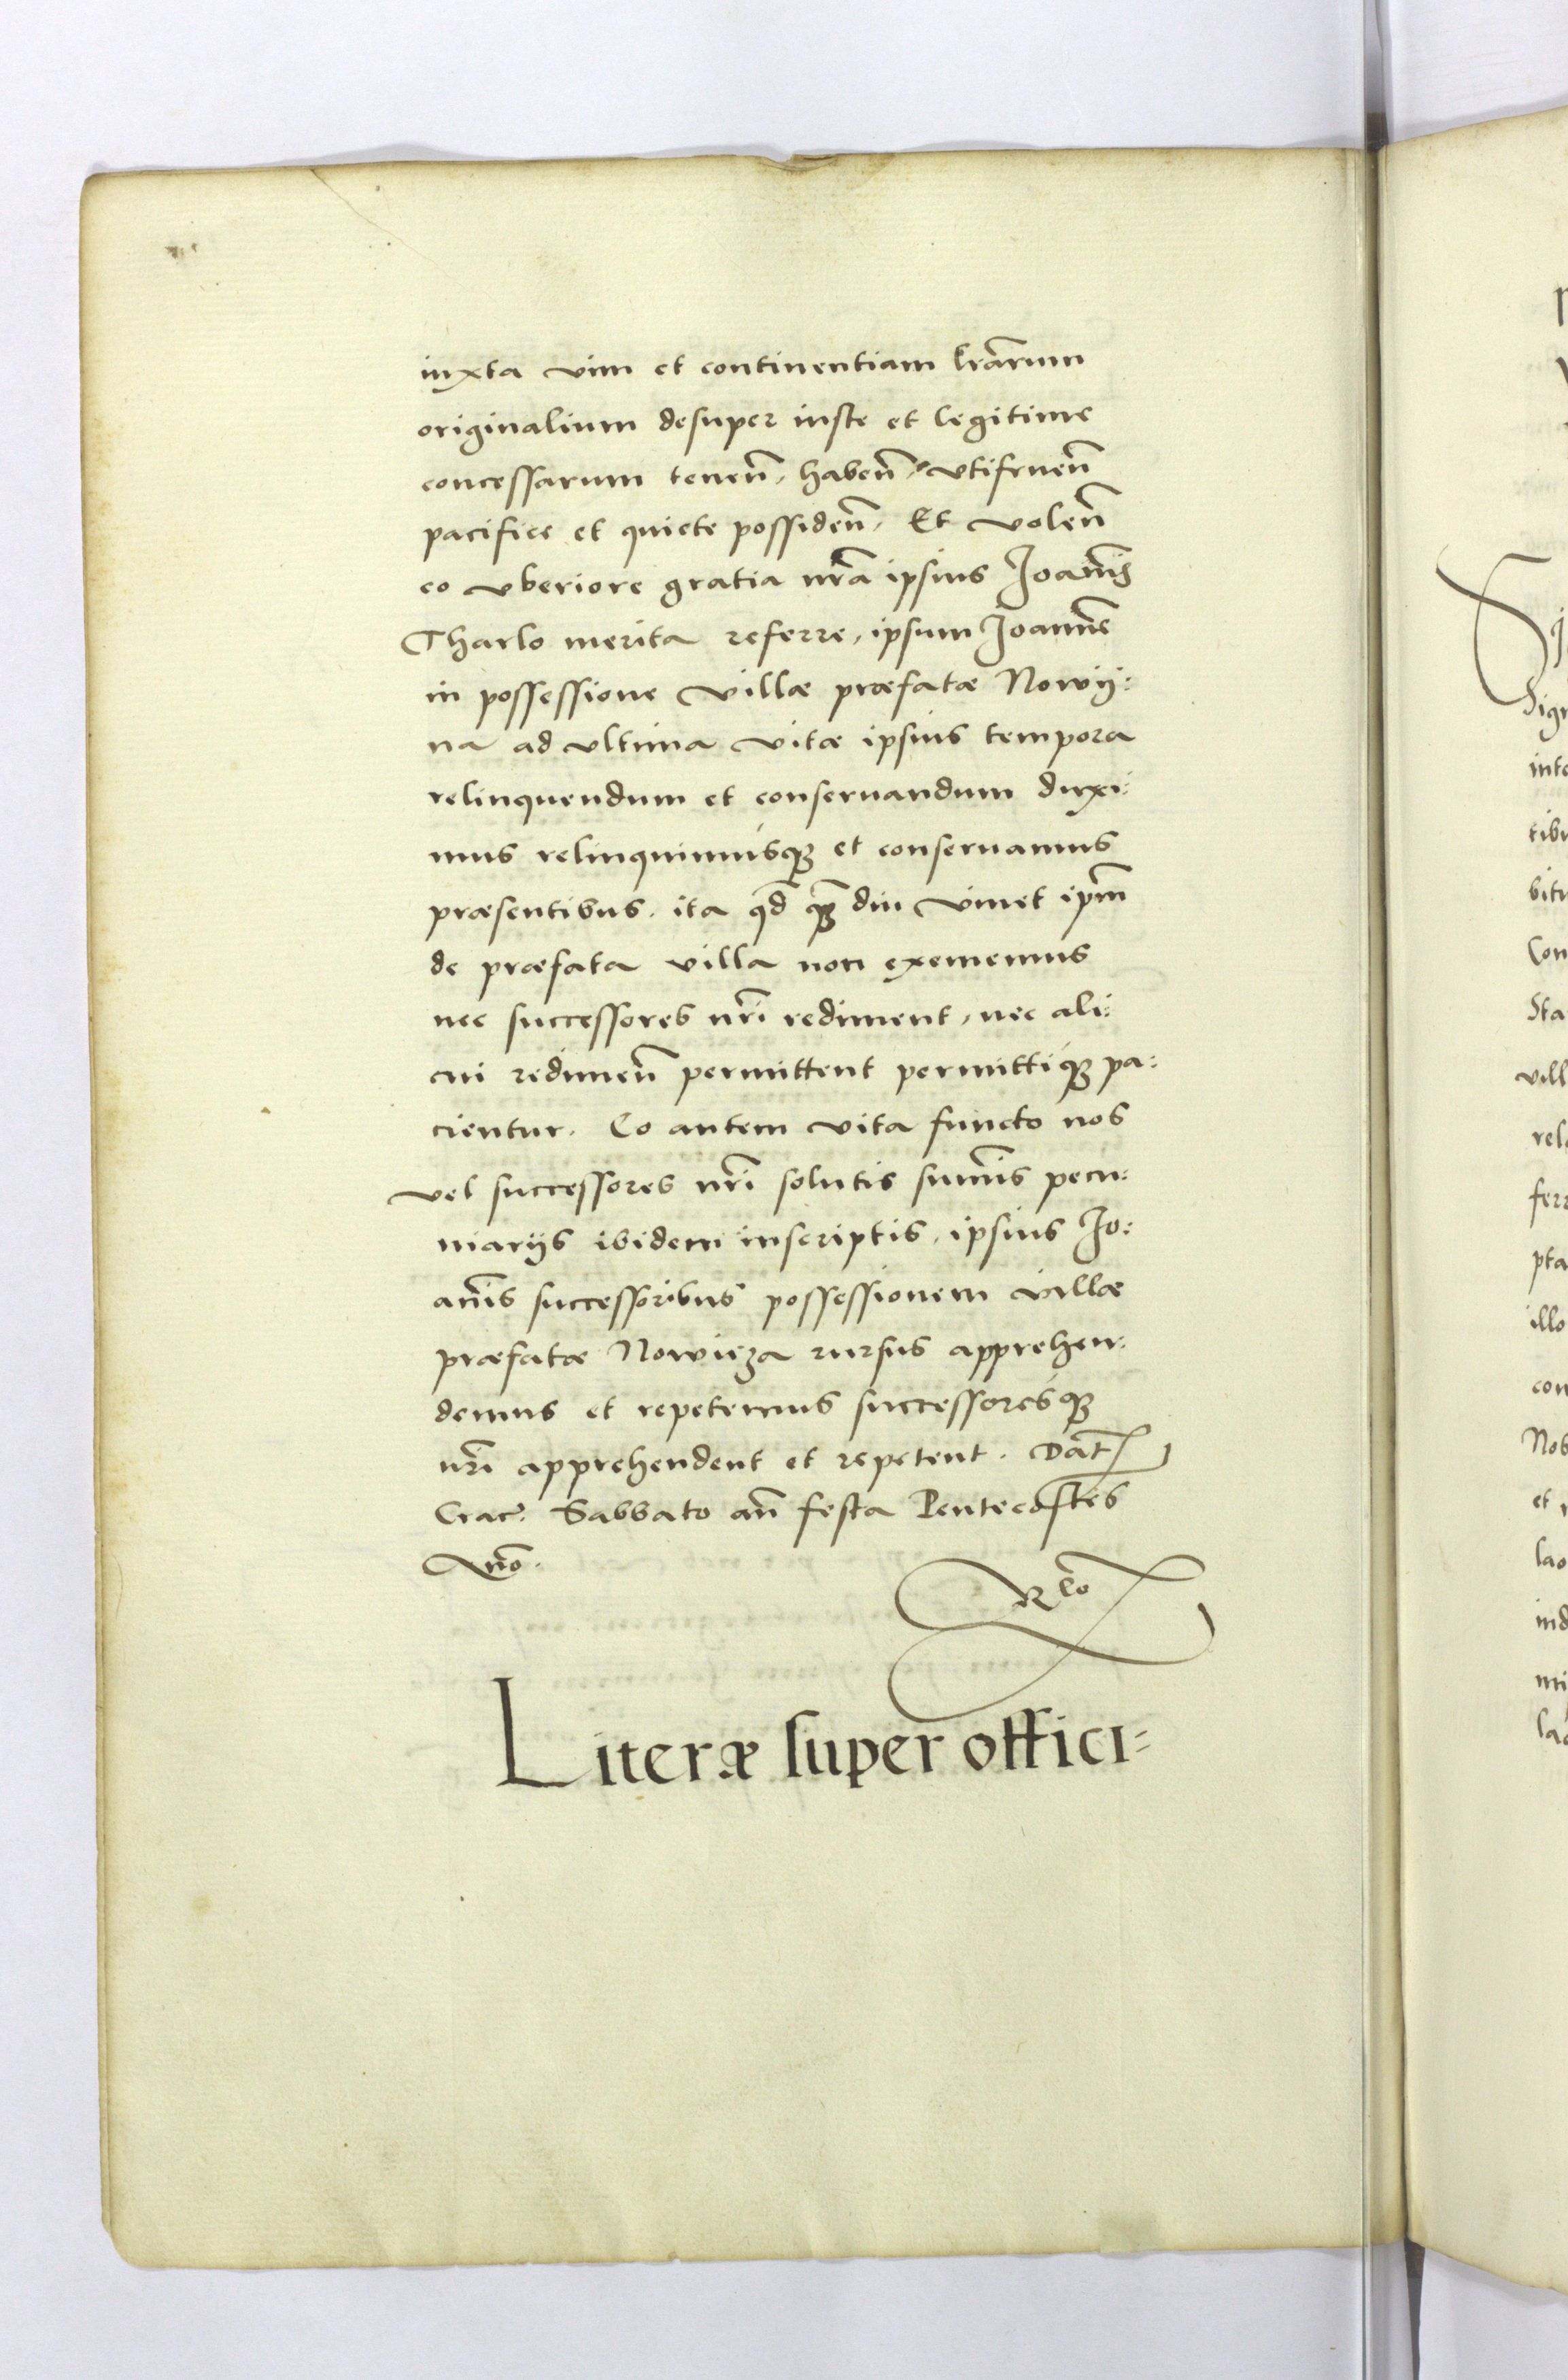 iuxta vim et continentiam lrārum
originalium desuper iuste et legitime
concessarum teneñ, habeñ, vtifrueñ
pacifice et quiete possideñ, Et voleñ
eo vberiore gratia nrā ipsius Joannis
Tharlo merita referre, ipsum Joannē
in possessione villæ præfatæ Nowij:
na ad vltima vitæ ipsius tempora
relinquendum et conseruandum duxi:
mus relinquimusqꝫ et conseruamus
præsentibus, ita qd̄ qꝫ̄ diu viuet ipm̄
de præfata villa non exememus
nec successores nrī rediment, nec ali:
cui redimeñ permittent permittiqꝫ pa:
cientur. Eo autem vita functo nos
vel successores nrī solutis sum̄is pecu:
niarijs ibidem inscriptis, ipsius Jo:
an̄is successoribus possessionem villæ
præfatæ Nowieza rursus apprehen:
demus et repetemus successoresqꝫ
nrī apprehendent et repetent. Dat̄
Crac. Sabbato an̄ festa Pentecostes
Anō.
Rlō
Literæ super offici=
Sig
inte
tibu
bitu
Con
Sta
vill
rela
ferr
pta
illo
con
Nob
et
lao
ind
mi